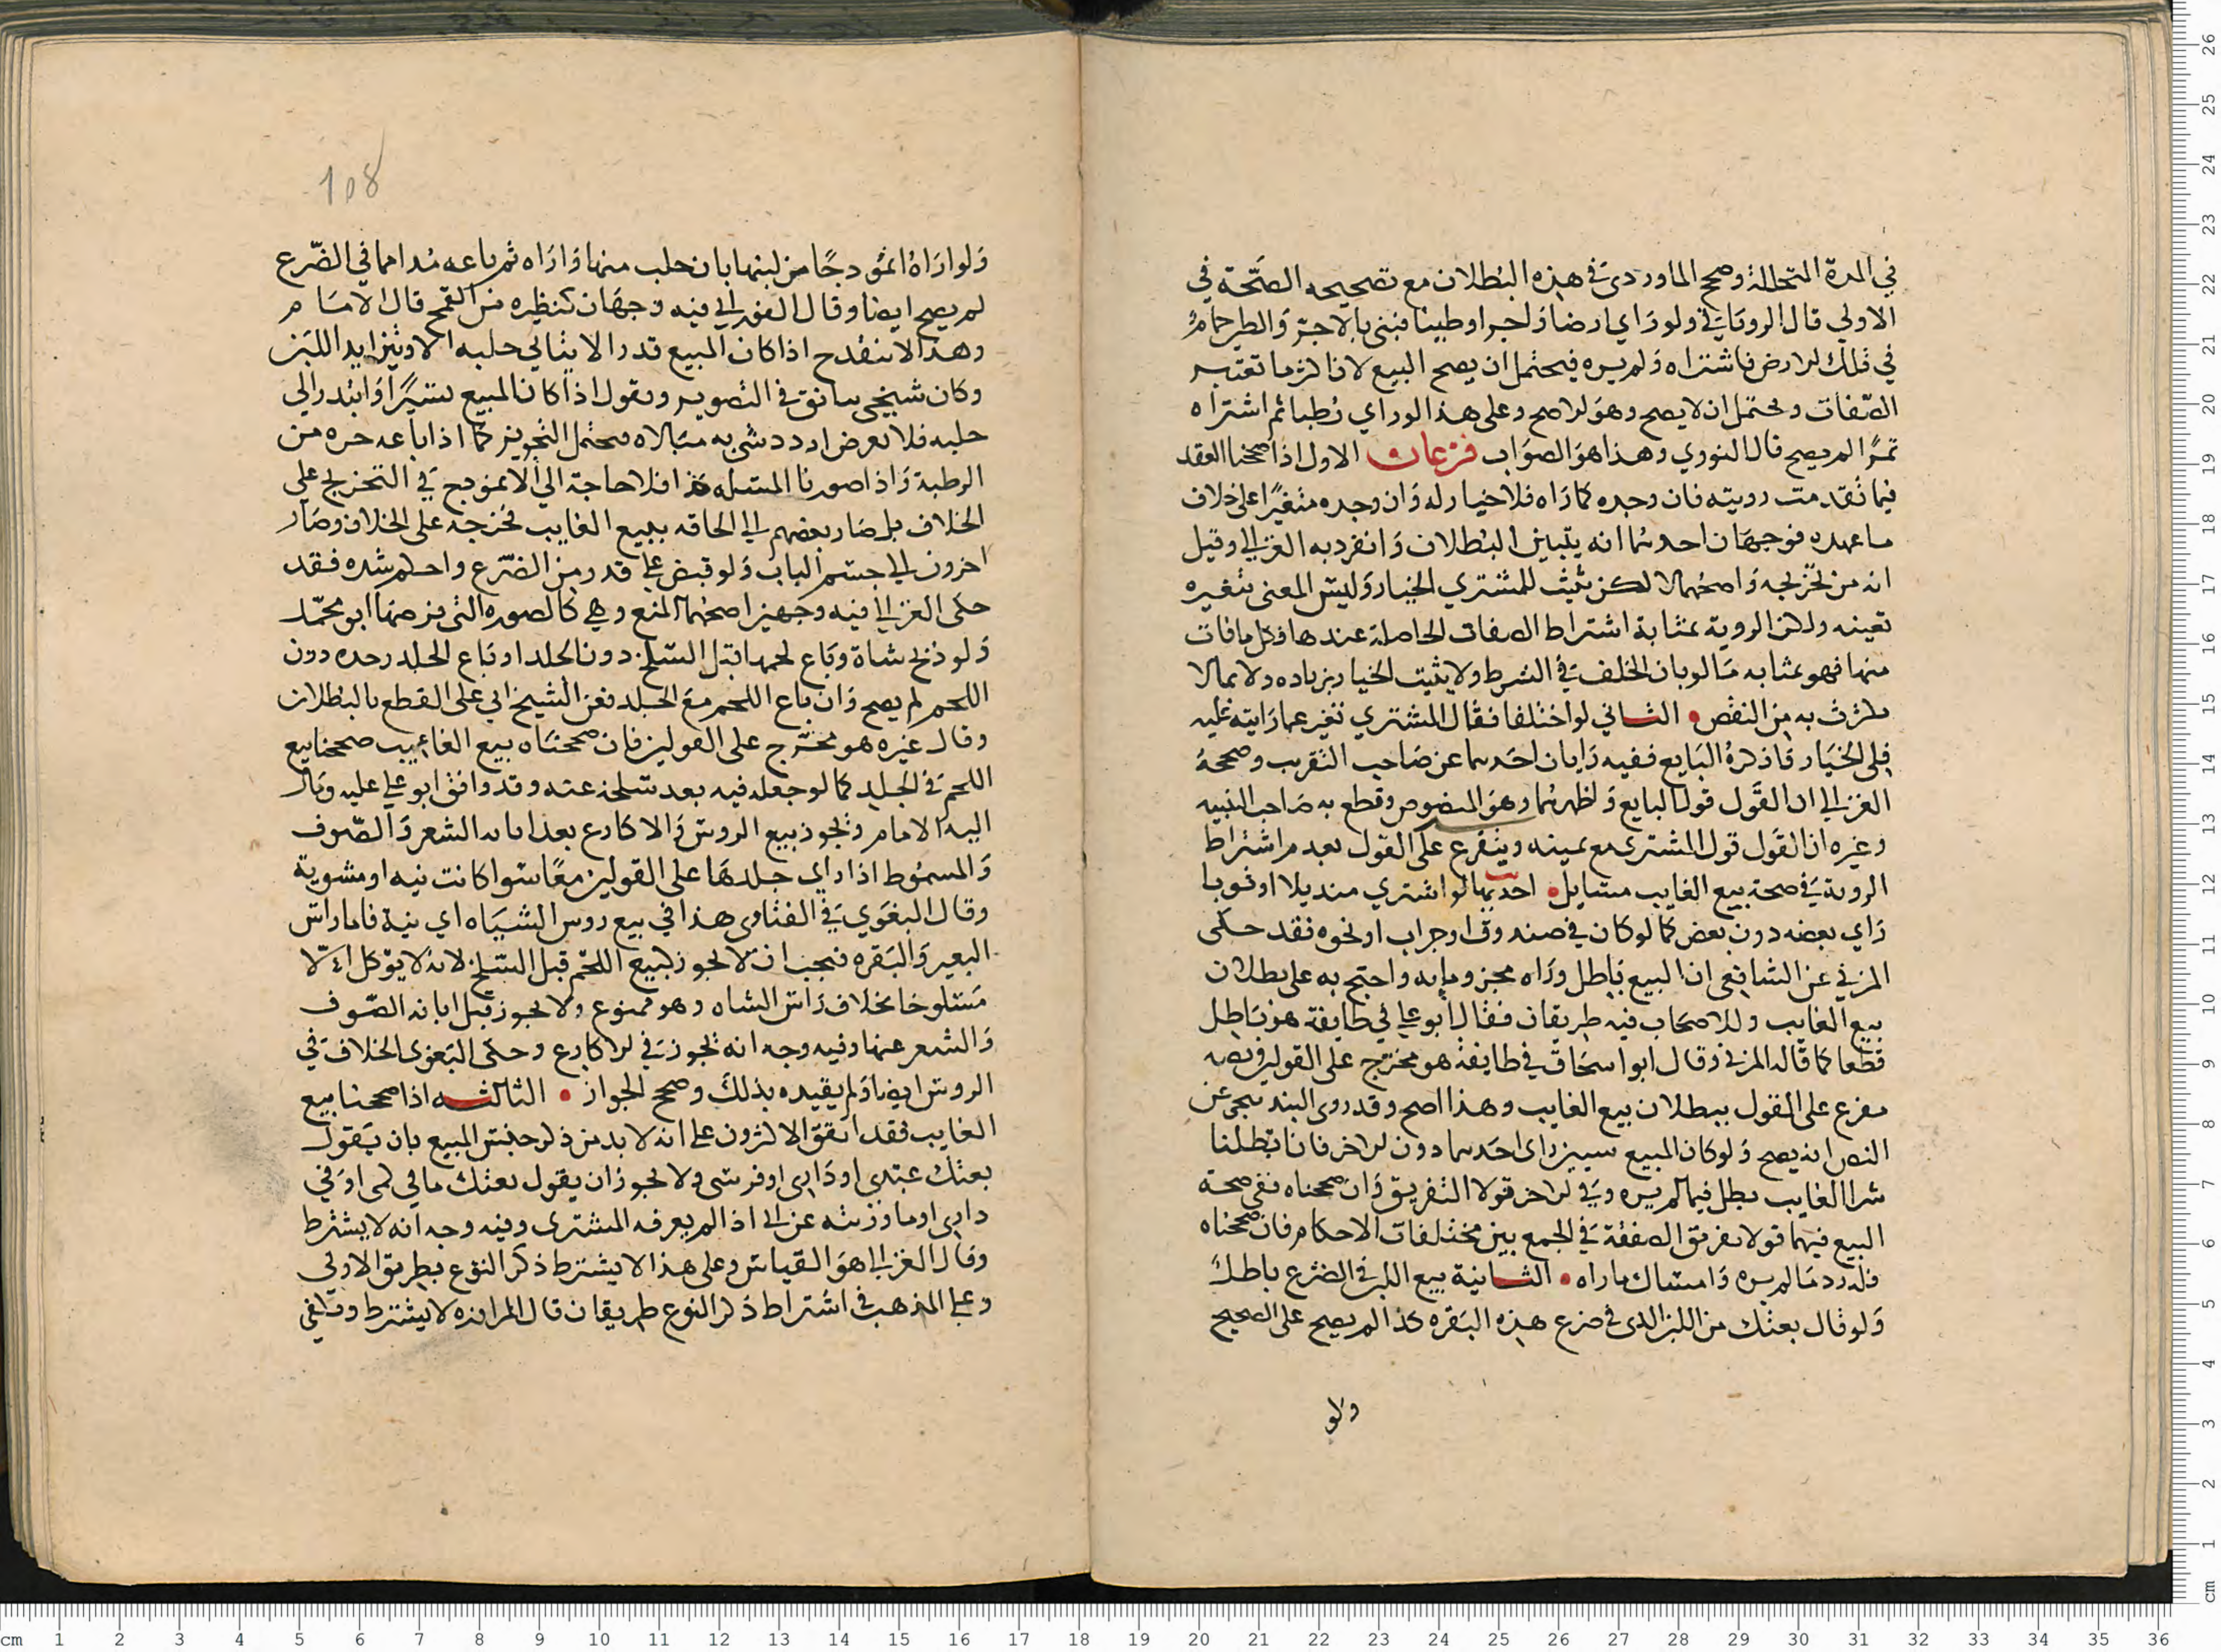 في المدة المتخللة وصحح الماوردي في هذه البطلان مع تصحيحه الصحة في
الاولي قال الروياني ولو راي ارضا واجرا وطينا فبني بالاجر والطين حمام
في تلك الارض فاشتراه ولم يره فيحتمل ان يصح البيع لان اكثر ما تعتبر
الصفات ويحتمل ان لا يصح وهو الاصح وعلى هذا لو راي رطبا ثم اشتراه
تمرًا لم يصح قال النووي وهذا هو الصواب فرعان الاول اذا صححنا العقد
فيما تقدمت رويته فان وجده كما راه فلا خيار له وان وجده متغيرًا على خلاف
ما عهده فوجهان احدهما انه يتبين البطلان وانفرد به الغزالي وقيل
انه من تخريجه واصحهما لا لكن يثبت للمشتري الخيار وليس المعنى بتغيره
تعيبه ولكن الروية بمثابة اشتراط الصفات الحاصلة عندها وكل ما فات
منها فهو بمثابه ما لو بان الخلف في الشرط ولا يثبت الخيار بزياده ولا بما لا
يكترث به من النقص الثاني لو اختلفا فقال المشتري تغير عما رايته عليه
فلي الخيار فاذكره البايع ففيه رايان احدهما عن صاحب التقريب وصححه
الغزالي ان القول قول البايع واظهرهما وهو المنصوص وقطع به صاحب التنبيه
وغيره ان القول قول المشتري مع يمينه ويتفرع على القول بعدم اشتراط
الروية في صحة بيع الغايب مسايل احديها لو اشتري منديلا او ثوبا
راي بعضه دون بعض كما لو كان في صندوق او جراب او نحوه فقد حكى
المزني عن الشافعي ان البيع باطل وراه مجزوما به واحتج به على بطلان
بيع الغايب وللاصحاب فيه طريقان فقال ابو علي في طايفة هو باطل
قطعا كما قاله المزني وقال ابو اسحاق في طايفة هو مخرج على القولين ونصه
مفرع على القول ببطلان بيع الغايب وهذا اصح وقد روى البندنيجي عن
النص انه يصح ولو كان المبيع شيئين راى احدهما دون الاخر فان ابطلنا
شرا الغايب بطل فيما لم يره وفي الاخر قولا التفريق وان صححناه ففي صحة
البيع فيهما قولا تفريق الصفقة في الجمع بين مختلفات الاحكام فان صححناه
فله رد ما لم يره وامساك ما راه الثانية بيع اللبن في الضرع باطل
ولو قال بعتك من اللبن الذي في ضرع هذه البقره كذا لم يصح على الصحيح
ولو
108
ولو اراه انموذجًا من لبنها بان حلب منها واراه ثم باعه مُدا مما في الضرع
لم يصح ايضا وقال الغزالي فيه وجهان كنظيره من القمح قال الامام
وهذا لا ينقدح اذا كان المبيع قدرا لا يتاتي حلبه الا ويتزايد اللبن
وكان شيخي يتانق في التصوير ويقول اذا كان المبيع يسيرًا وابتدر الى
حلبه فلا يعرض ازدد شي به مبالاه فيحتمل التجويز كما اذا باعه جزه من
الرطبة واذا صورنا المسله هكذا فلا حاجة الي الانموذج في التخريج علي
الخلاف بل صار بعضهم الي الحاقه ببيع الغايب فخرجه على الخلاف وصار
اخرون الي حسم الباب ولو قبض علي قدر من الضرع واحكم شده فقد
حكى الغزالي فيه وجهين اصحهما المنع وهي كالصوره التي فرضها ابو محمد
ولو ذبح شاة وباع لحمها قبل السلخ دون الجلد او باع الجلد وحده دون
اللحم لم يصح وان باع اللحم مع الجلد فعن الشيخ ابي علي القطع بالبطلان
وقال غيره هو مخرج على القولين فان صححناه بيع الغايب صححنا بيع
اللحم في الجلد كما لو جعله فيه بعد سلخه عنه وقد وافق ابو علي عليه ومال
اليه الامام ويجوز بيع الروس والاكارع بعد ابانه الشعر والصوف
والمسموط اذا راي جلدها على القولين معًا سوا كانت نيه او مشوية
وقال البغوي في الفتاوى هذا في بيع روس الشياه اي نية فاما راس
البعير والبقره فيجب ان لا يجوز كبيع اللحم قبل السلخ لانه لا يوكل الا
مسلوخا بخلاف راس الشاه وهو ممنوع ولا يجوز قبل ابانه الصوف
والشعر عنها وفيه وجه انه يجوز في الاكارع وحكى البغوى الخلاف في
الروس ايضا ولم يقيده بذلك وصحح الجواز الثالثه اذا صححنا بيع
الغايب فقد اتفق الاكثرون علي انه لا بد من ذكر جنس المبيع بان يقول
بعتك عبدى او دارى او فرسى ولا يجوز ان يقول بعتك ما في كمى او في
دارى او ما ورثته عن ابي اذا لم يعرفه المشترى وفيه وجه انه لا يشترط
وقال الغزالي هو القياس وعلى هذا لا يشترط ذكر النوع بطريق الاولي
وعلي المذهب في اشتراط ذكر النوع طريقان قال المراوزه لا يشترط وفي